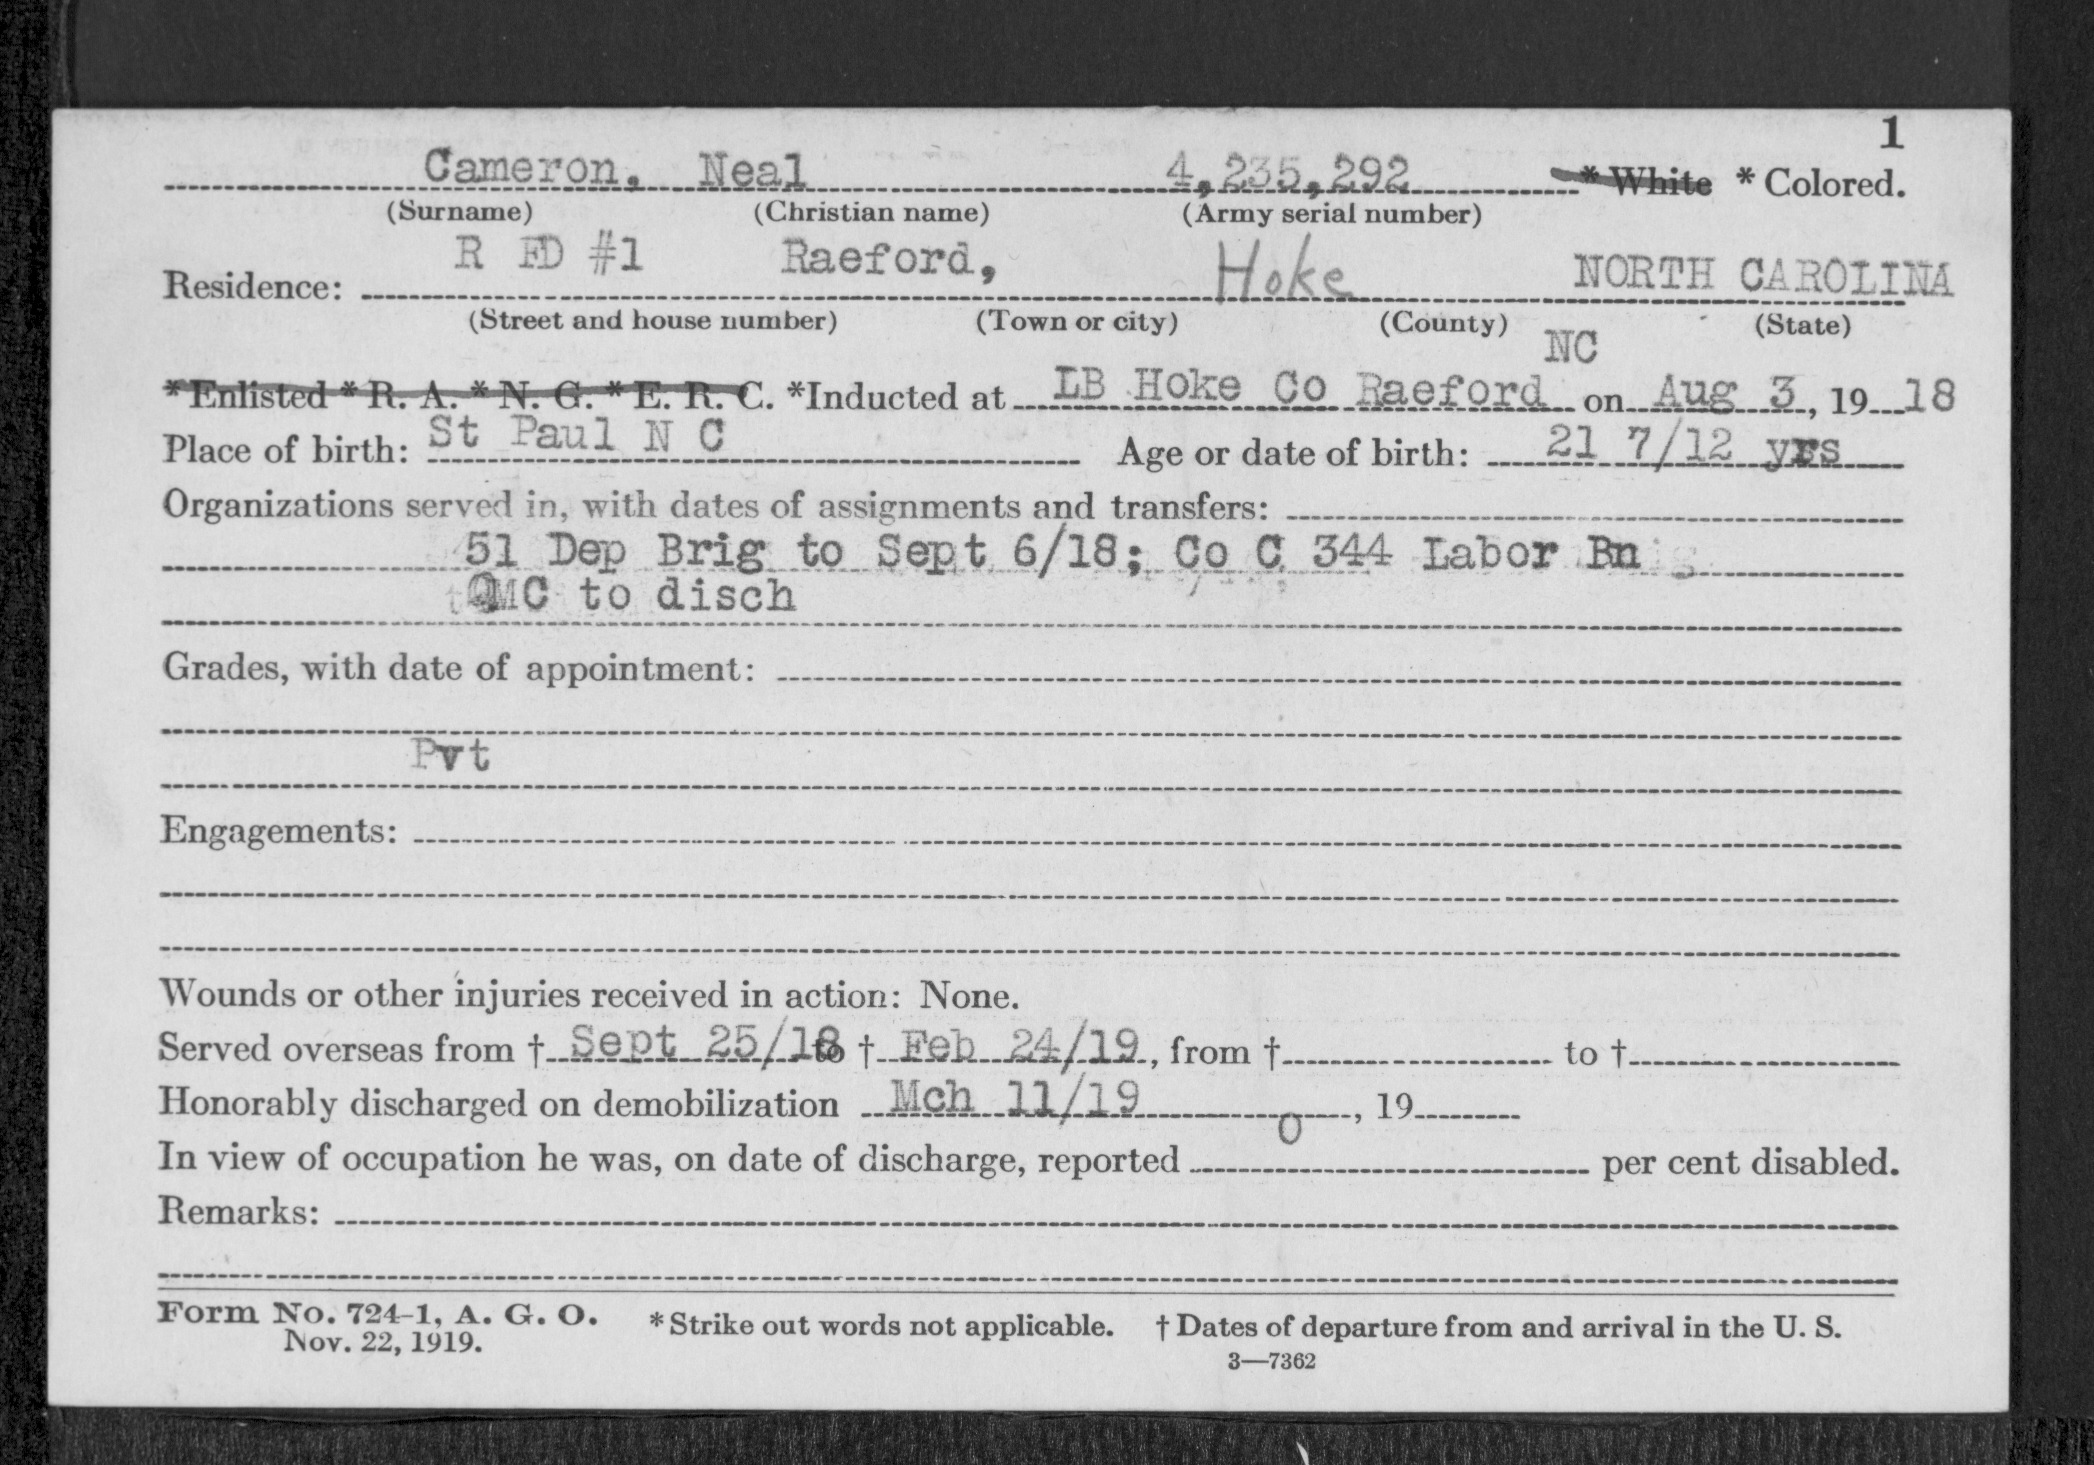 1
Cameron, Neal 4,235,292 * White * Colored.
(Surname) (Christian name) (Army serial number)
R FD #1 Raeford, Hoke NORTH CAROLINA
Residence:
(Street and house number) (Town or city) (County) (State)
NC
*Enlisted *R. A. *N. G. *E. R. C. *Inducted at LB Hoke Co Raeford on Aug 3, 1918
Place of birth: St Paul N C Age or date of birth: 21 7/12 yrs
Organizations served in, with dates of assignments and transfers:
51 Dep Brig to Sept 6/18; Co C 344 Labor Bn
QMC to disch
Grades, with date of appointment:
Pvt
Engagements:
Wounds or other injuries received in action: None.
Served overseas from † Sept 25/18 to † Feb 24/19, from † to †
Honorably discharged on demobilization Mch 11/19, 19
In view of occupation he was, on date of discharge, reported 0 per cent disabled.
Remarks:
Form No. 724-1, A. G. O. *Strike out words not applicable. † Dates of departure from and arrival in the U. S.
Nov. 22, 1919. 3—7362